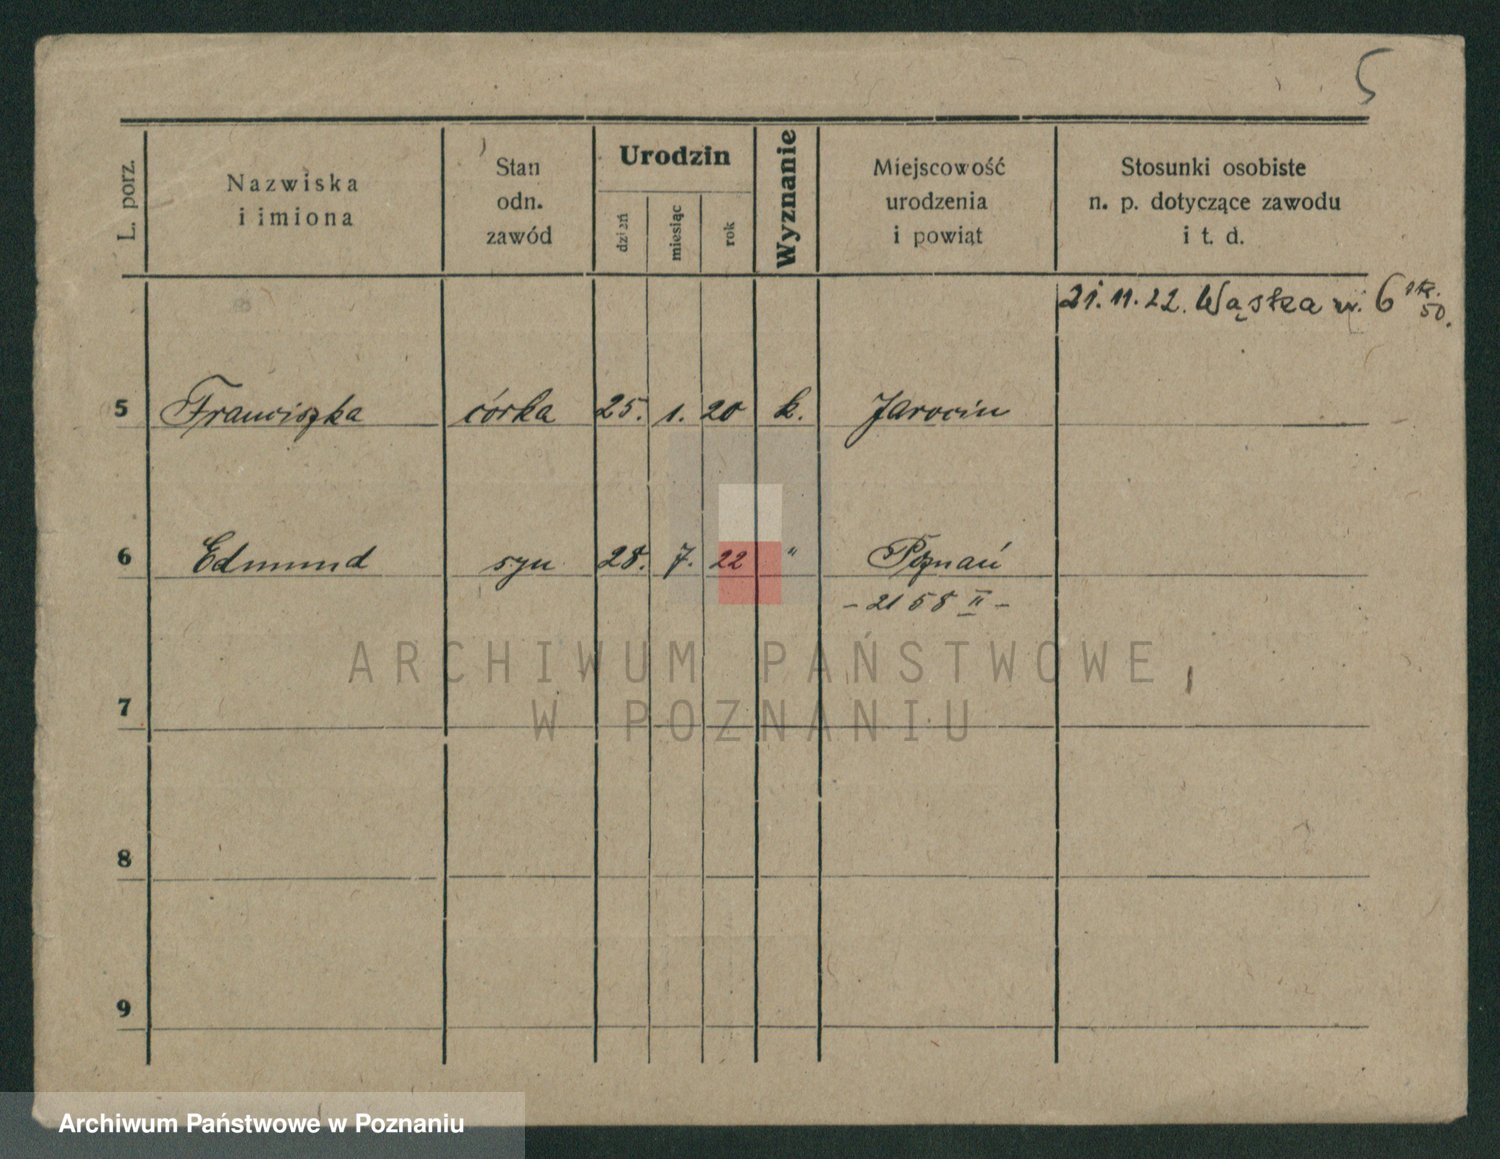 5
L. porz.
Nazwiska
i imiona
Stan
odn.
zawód
Urodzin
dzień
miesiąc
rok
Wyznanie
Miejscowość
urodzenia
i powiąt
Stosunki osobiste
n. p. dotyczące zawodu
i t. d.
21.11.22. Wąska 6
50.
5 Franciszka córka 25. 1. 20 k. Jarocin
6 Edmund syn 28. 7. 22 " Poznań
- 2158 II -
ARCHIWUM PAŃSTWOWE
W POZNANIU
7
8
9
Archiwum Państwowe w Poznaniu